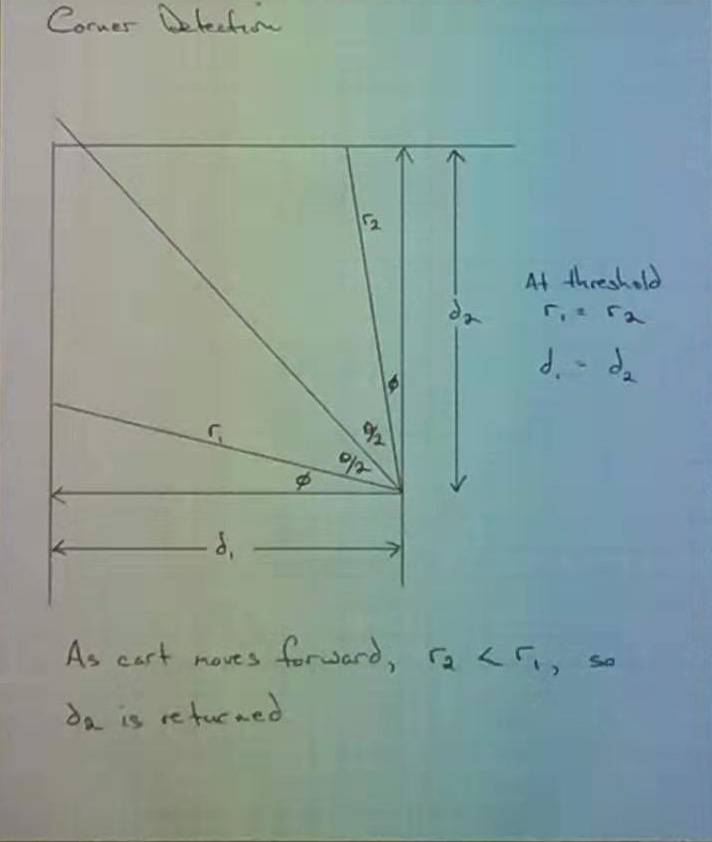 Corner Detection
r₂
d₂
At threshold
r₁ = r₂
d₁ = d₂
φ
θ/2
r₁
θ/2
φ
d₁
As cart moves forward, r₂ < r₁, so
d₂ is returned